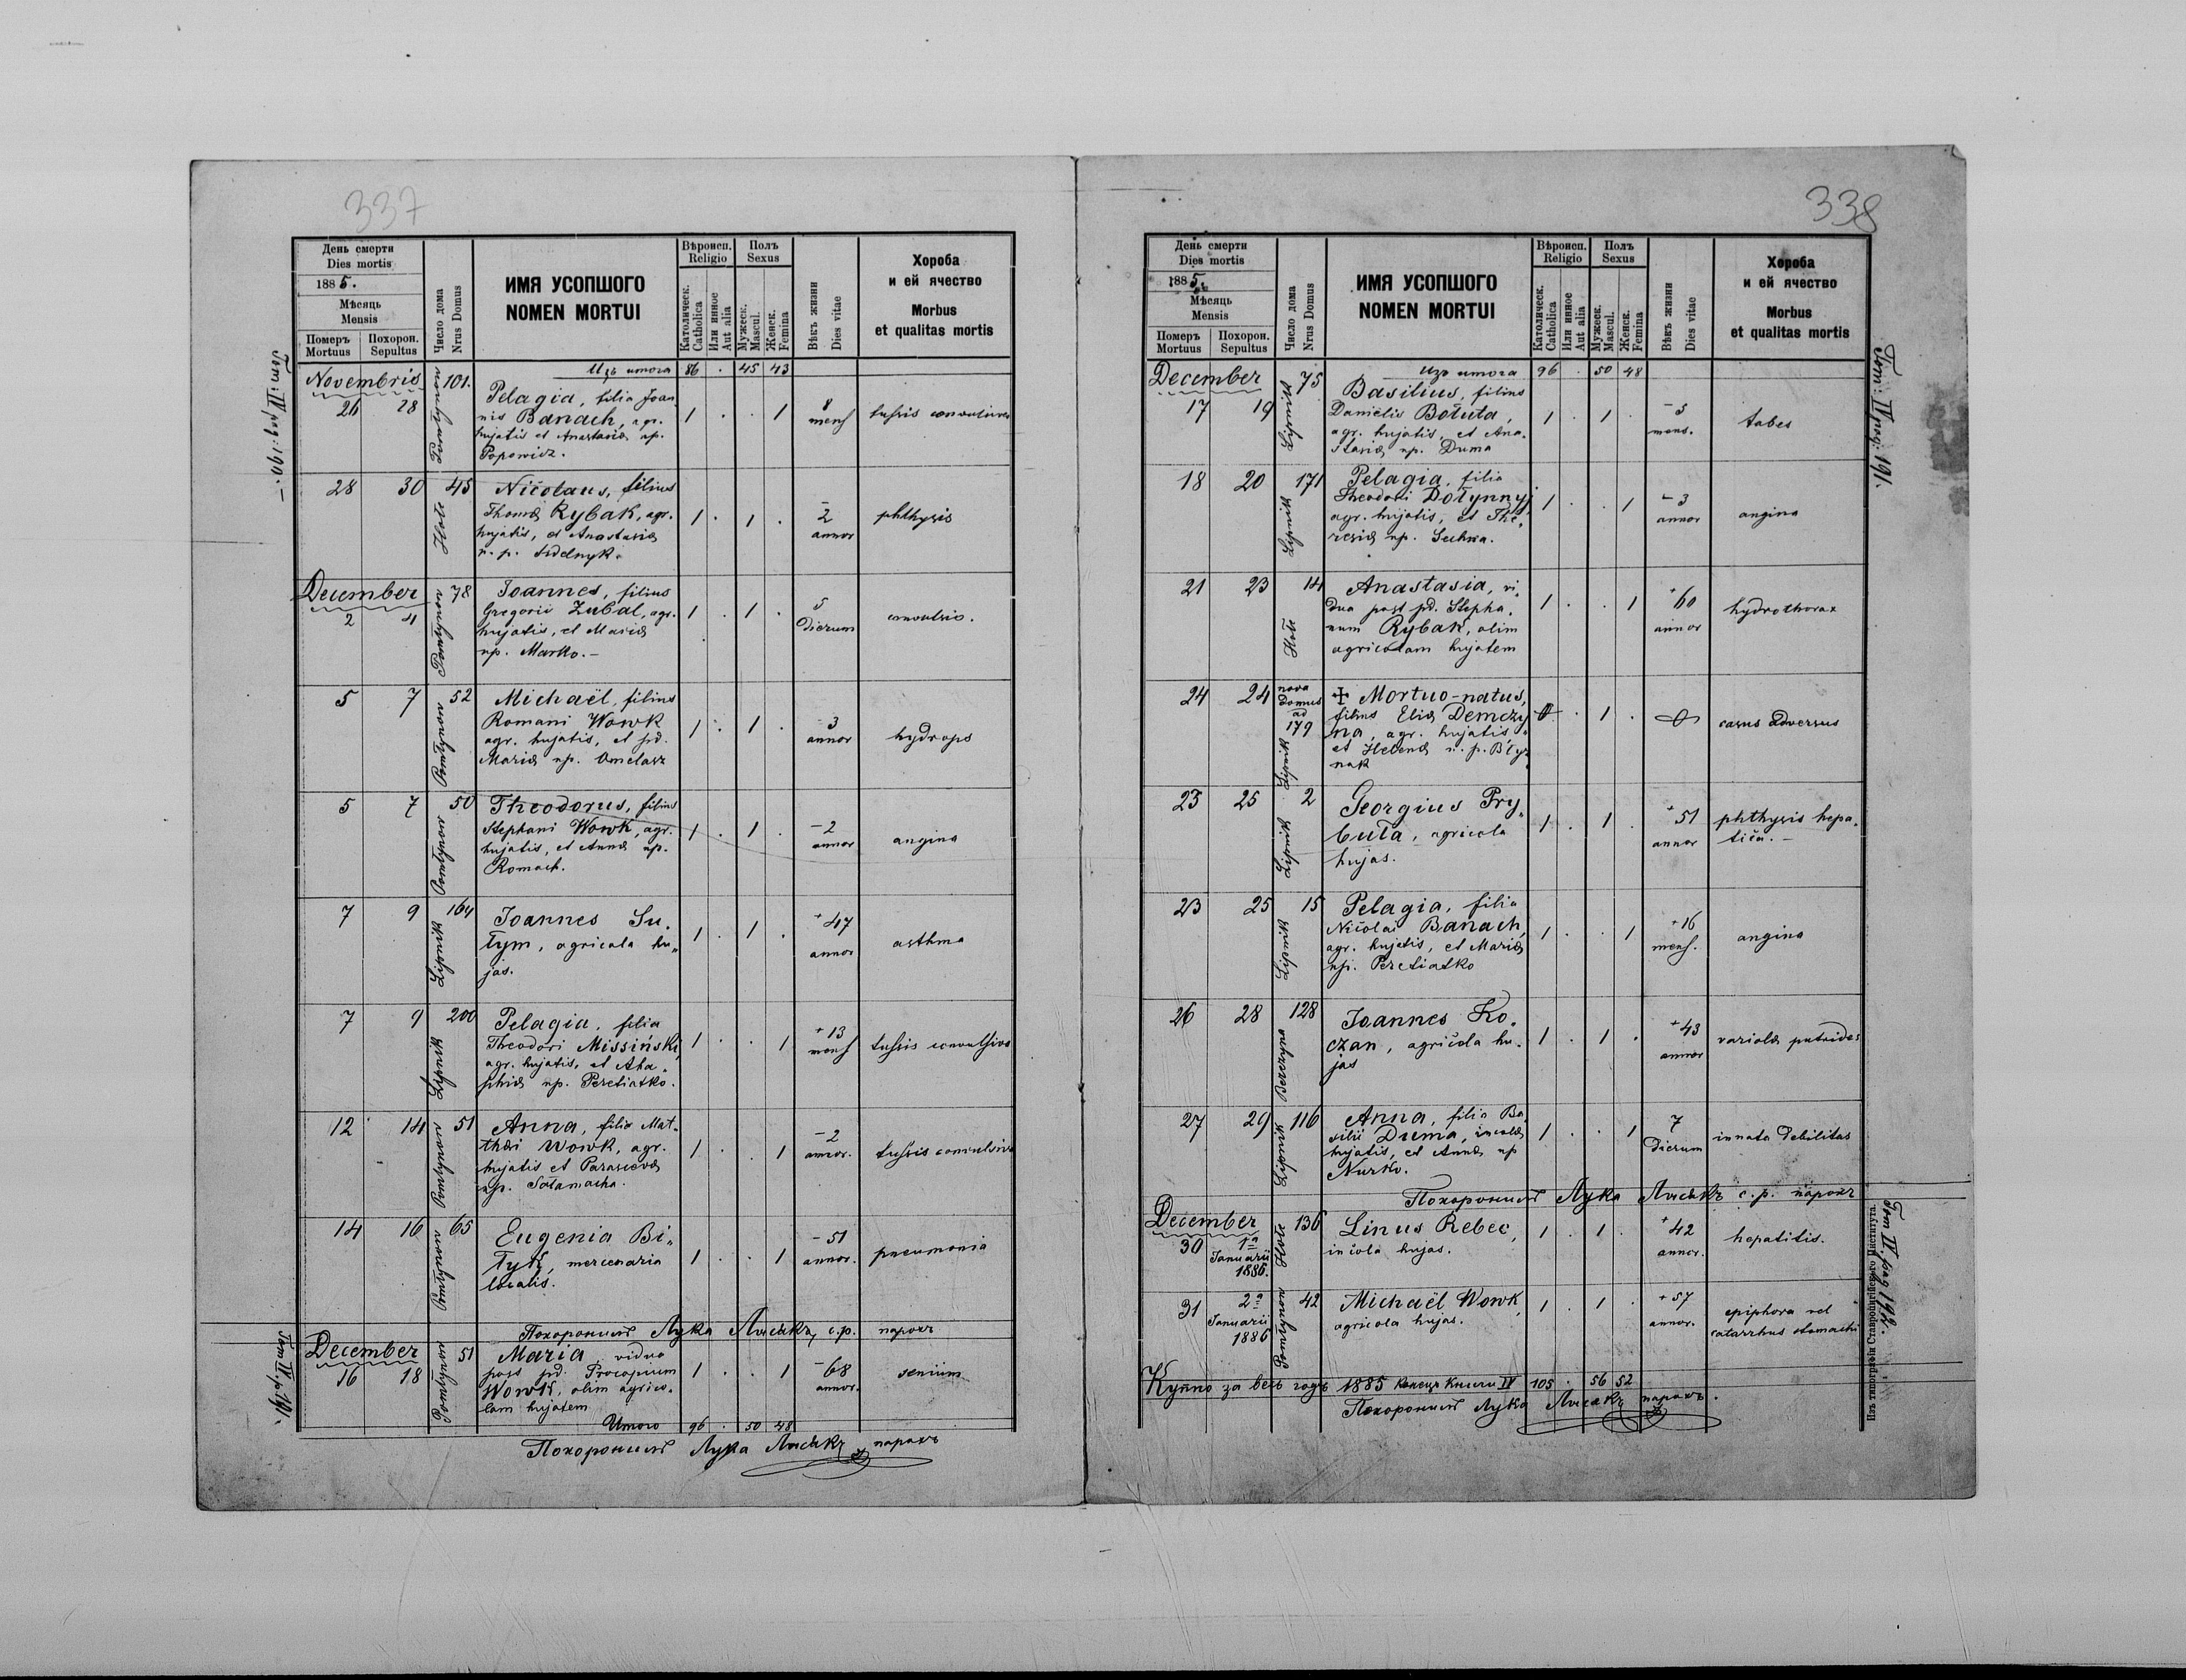 337
Tom: IV pag: 190. —
День смерти
Dies mortis
1885.
Мѣсяць
Mensis
Померъ
Mortuus
Похорон.
Sepultus
Число дома
Nrus Domus
ИМЯ УСОПШОГО
NOMEN MORTUI
Вѣроисп.
Religio
Католическ.
Catholica
Или инное
Aut alia
Полъ
Sexus
Мужеск.
Mascul.
Женск.
Femina
Вѣкъ жизни
Dies vitae
Хороба
и ей ячество
Morbus
et qualitas mortis
Изъ итога 86 . 45 43
Novembris
26 28 101. Pomtynon
Pelagia, filia Joan
nis Banach, agr.
hujatis et Anastasiæ np.
Popowicz.
1 . . 1
8
mens
tussis convulsiva
28 30 45 Hołe
Nicolaus, filius
Thomæ Rybak, agr.
hujatis, et Anastasiæ
n. p.
1 . 1 .
2
annor
phthysis
December
2 4 78
Joannes, filius
Gregorii Zubal, agr.
hujatis, et Mariæ
np. Marko. —
1 . 1 .
5
dierum
convulsio.
5 7 52
Michaël, filius
Romani Wowk
agr. hujatis, et pd.
Mariæ np. Omelasz
1 . 1 .
3
annor
hydrops
5 7 50
Theodorus, filius
Stephani Wowk, agr.
hujatis, et Annæ np.
Romach.
1 . 1 .
2
annor
angina
7 9 164 Lipnik
Joannes Su„
łym, agricola hu„
jas.
1 . 1 .
+47
annor
asthma
7 9 200 Lipnik
Pelagia, filia
Theodori Missiński,
agr. hujatis, et Aha„
phiæ np. Peretiatko.
1 . . 1
+13
mens
tussis convulsiva
12 14 51
Anna, filia Mat„
thæi Wowk, agr.
hujatis et Parascevæ
np. Sałamacha.
1 . . 1
2
annor.
tussis convulsiva
14 16 65
Eugenia Bi„
łyk, mercenaria
localis.
1 . . 1
51
annor.
pneumonia
Похоронилъ Лука Лисакъ, с.р. парохъ
Tom IV, p. 191.
December
16 18 51
Maria vidua
post pd. Procopium
Wowk, olim agrico„
lam hujatem
1 . . 1
68
annor.
senium
Итого 96 . 50 48
Похоронилъ Лука Лисакъ парохъ
338
Tom: IV pag: 191.
День смерти
Dies mortis
1885.
Мѣсяць
Mensis
Померъ
Mortuus
Похорон.
Sepultus
Число дома
Nrus Domus
ИМЯ УСОПШОГО
NOMEN MORTUI
Вѣроисп.
Religio
Католическ.
Catholica
Или инное
Aut alia
Полъ
Sexus
Мужеск.
Mascul.
Женск.
Femina
Вѣкъ жизни
Dies vitae
Хороба
и ей ячество
Morbus
et qualitas mortis
Изъ итога 96 . 50 48
December
17 19 75 Lipnik
Basilius, filius
Danielis Bołuta,
agr. hujatis, et Ana„
stasiæ np. Duma
1 . 1 .
5
mens.
tabes
18 20 171 Lipnik
Pelagia, filia
Theodori Dołynnyj
agr. hujatis, et The„
resiæ np. Suchra.
1 . . 1
3
annor
angina
21 23 14 Hołe
Anastasia, vi„
dua post pd. Stepha„
num Rybak, olim
agricolam hujatem
1 . . 1
+60
annor
hydrothorax
24 24 nova
domus
ad
179 Lipnik
✠ Mortuo-natus,
filius Eliæ Demczy
na, agr. hujatis„
et Helenæ n. p. Błyz„
nak
0 . 1 .
0
casus adversus
23 25 2 Lipnik
Georgius Pry„
buła, agricola
hujas.
1 . 1 .
+51
annor
phthysis hepa„
tica. —
23 25 15 Lipnik
Pelagia, filia
Nicolai Banach,
agr. hujatis, et Mariæ
np. Peretiatko
1 . . 1
+16
mens.
angina
26 28 128 Berezyna
Joannes Ko„
czan, agricola hu„
jas
1 . 1 .
+43
annor
variolæ putridæ
27 29 116 Lipnik
Anna, filia Ba
silii Duma, incolæ
hujatis, et Annæ np
Nurko.
1 . . 1
7
dierum
innata debilitas
Похоронилъ Лука Лисакъ с.р. парохъ
Tom IV. pag 192.
December
30 1ª
Januarii
1886. 136 Hołe
Linus Rebec,
incola hujas.
1 . 1 .
+42
annor.
hepatitis.
31 2ª
Januarii
1886 42
Michaël Wowk
agricola hujas.
1 . 1 .
+57
annor.
epiphora vel
catarrhus stomachi
Купно за весь годъ 1885 Конецъ Книги IV 105 . 56 52
Похоронилъ Лука Лисакъ парохъ.
Изъ типографіи Ставропигійского Института.